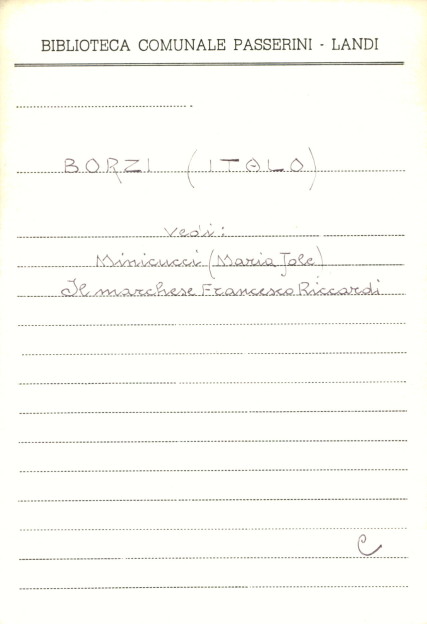 BIBLIOTECA COMUNALE PASSERINI - LANDI
BORZI (ITALO)
Vedi:
Minicucci (Maria Jole)
Il marchese Francesco Riccardi
C